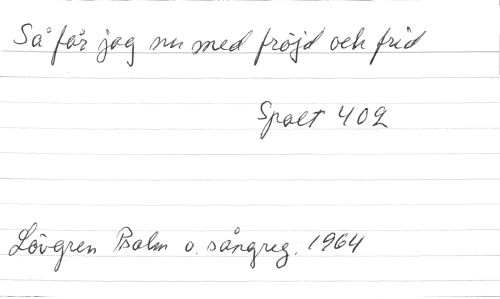 Så far jag nu med fröjd och frid
Spalt 402
Lövgren Psalm o. sångreg. 1964